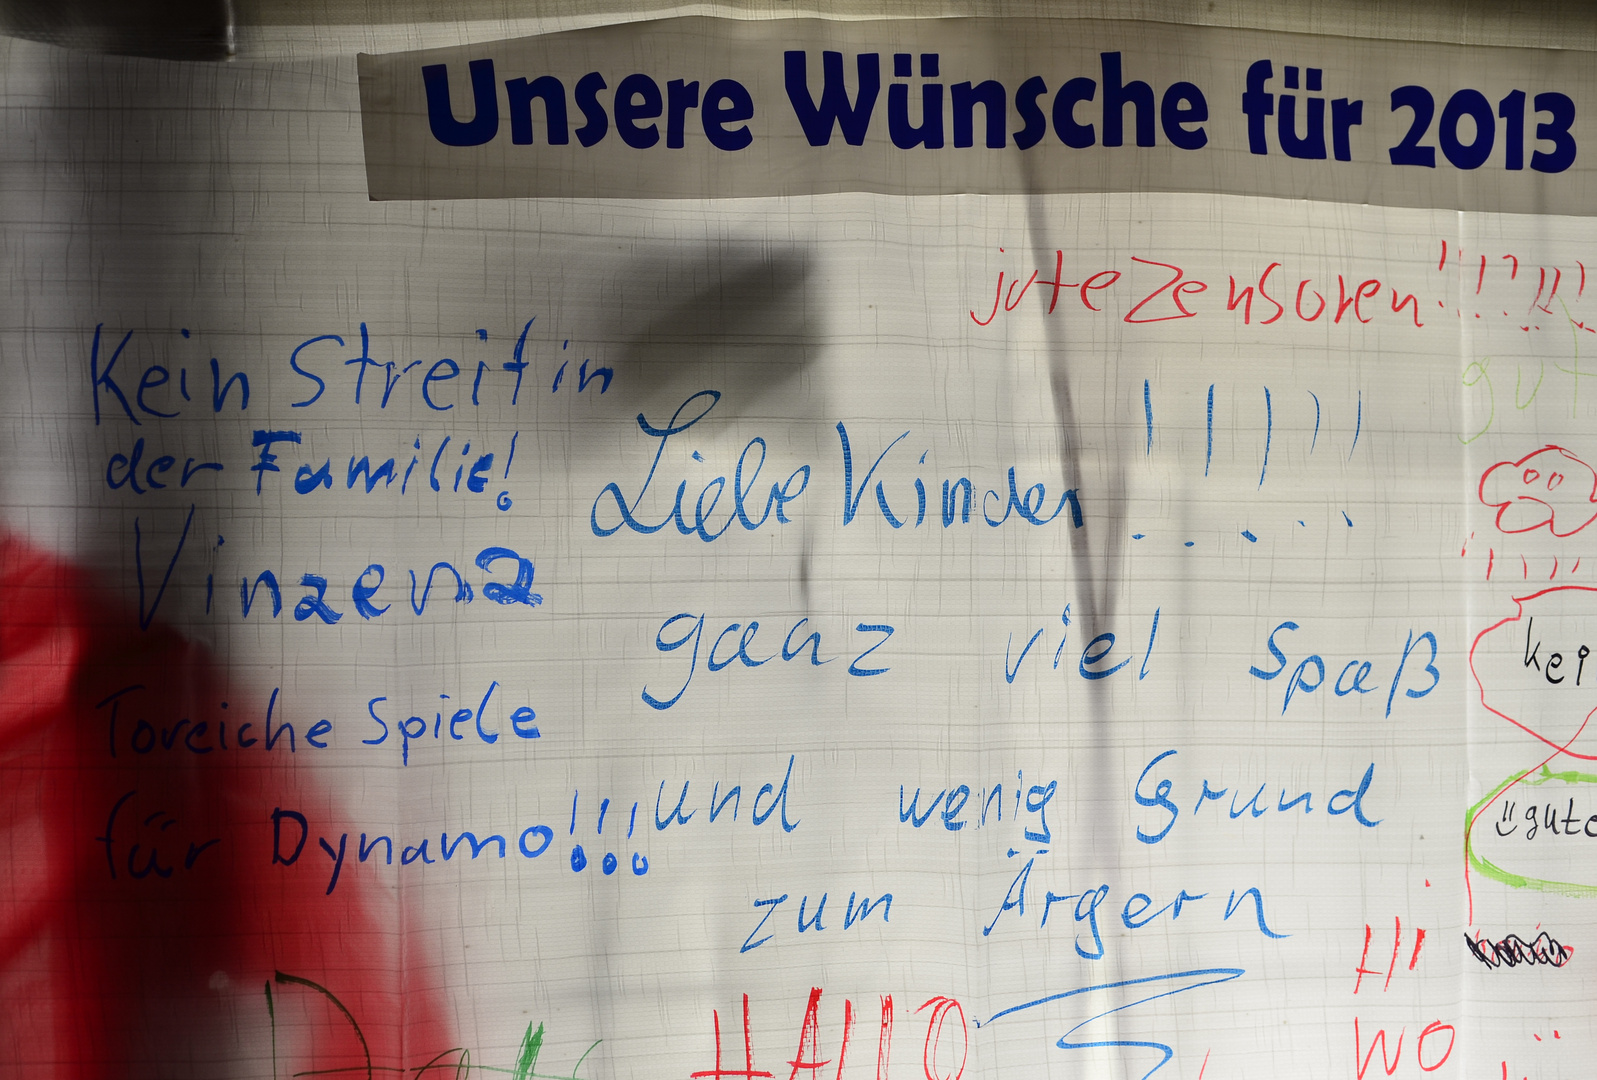 Unsere Wünsche für 2013
jute Zensoren!!!!!!
gut
Kein Streit in
der Familie!
Vinzenz
Liebe Kinder!!!!!
ganz viel Spaß
und wenig Grund
zum Ärgern
Toreiche Spiele
für Dynamo!!!
kei
gute
HALLO
Hi
WO